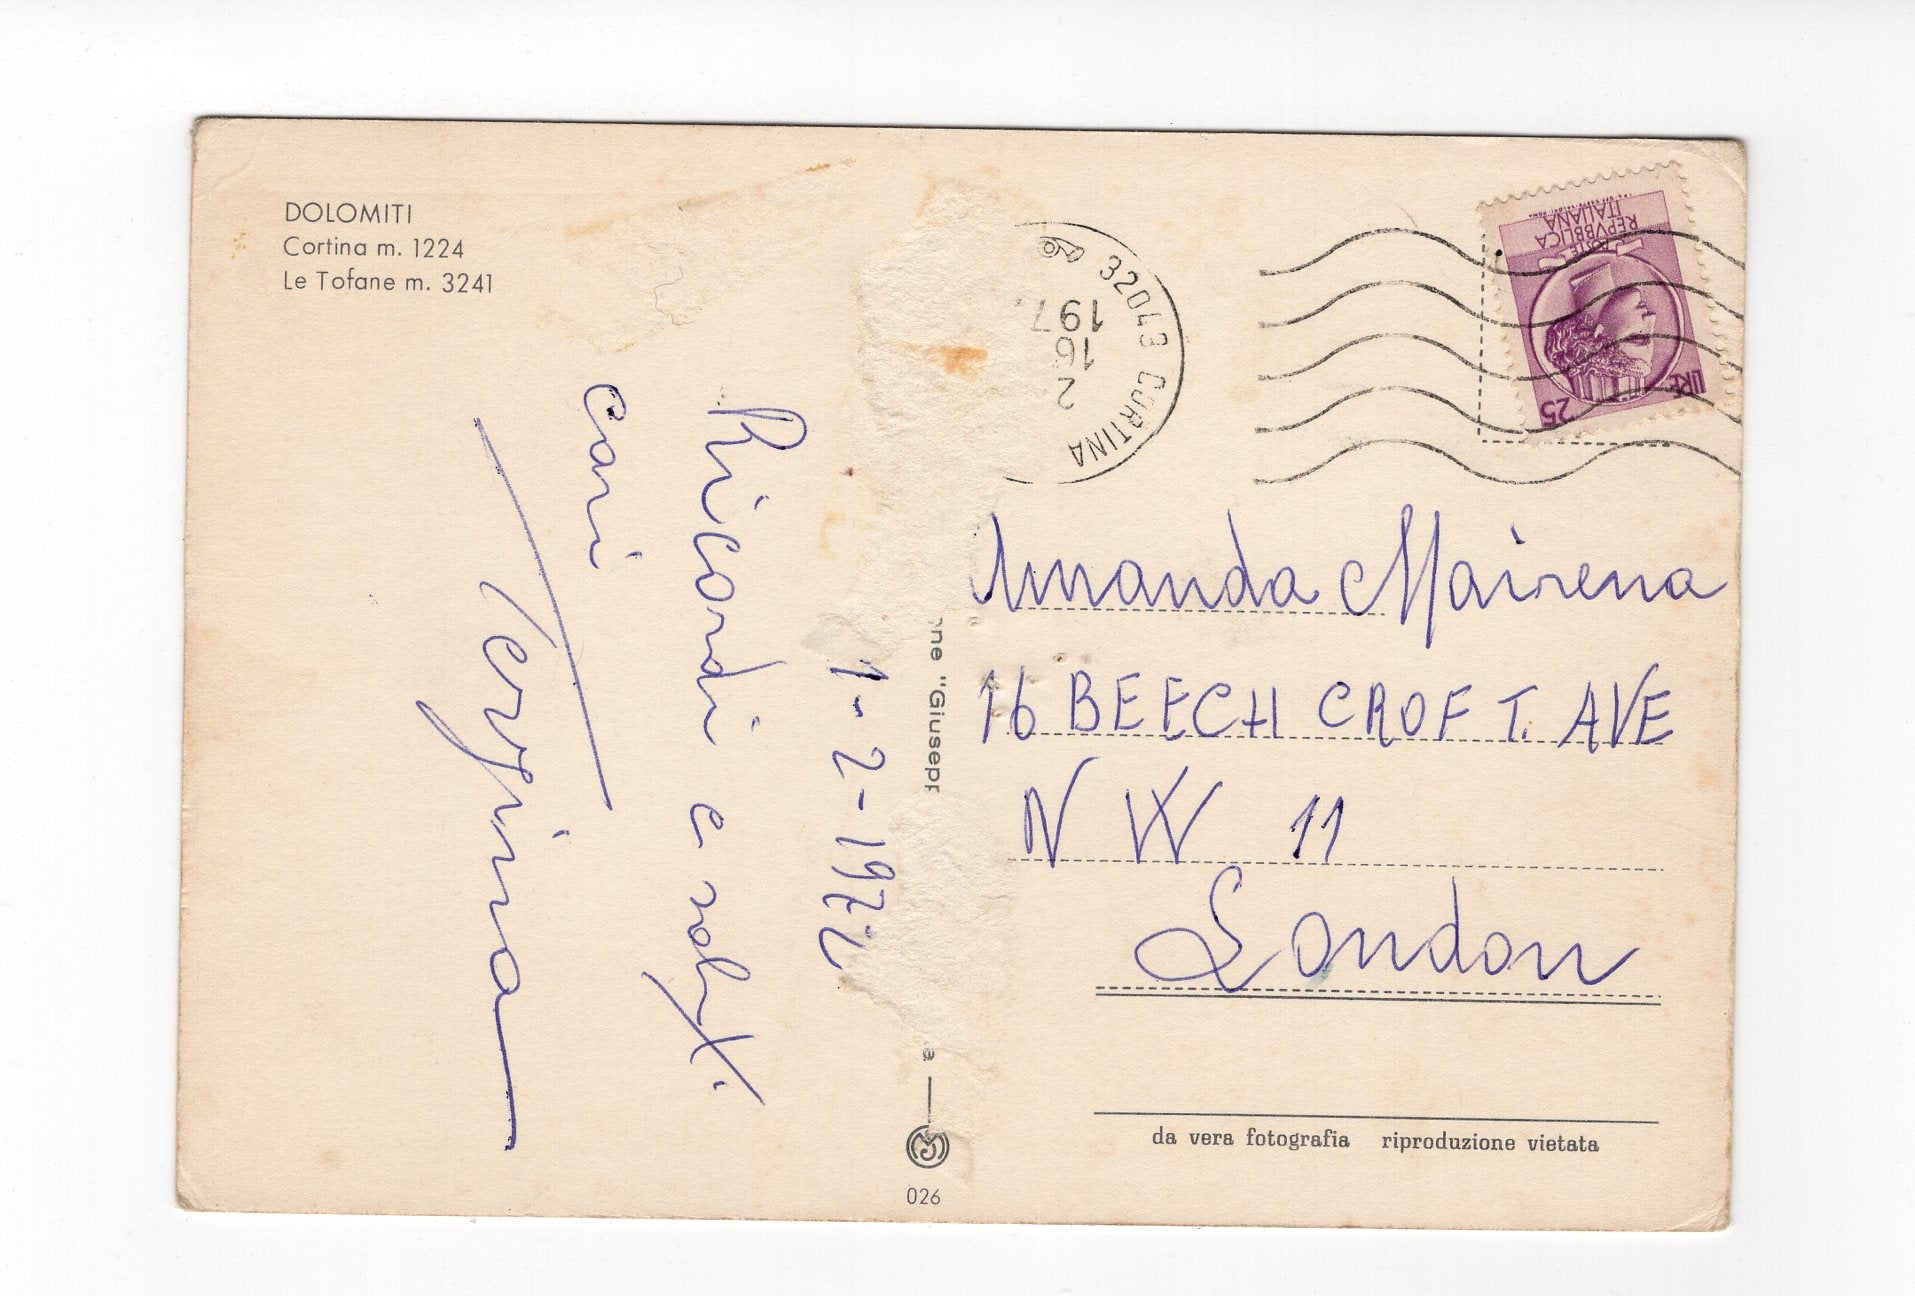 DOLOMITI
Cortina m. 1224
Le Tofane m. 3241
1-2-1972
Ricordi e saluti
cari
Terpina
ne "Giusepp
a
026
32043 CORTINA
2
16
197
POSTE
REPVBBLICA
ITALIANA
LIRE
25
Amanda Mairena
16 BEECH CROFT. AVE
NW 11
London
da vera fotografia riproduzione vietata